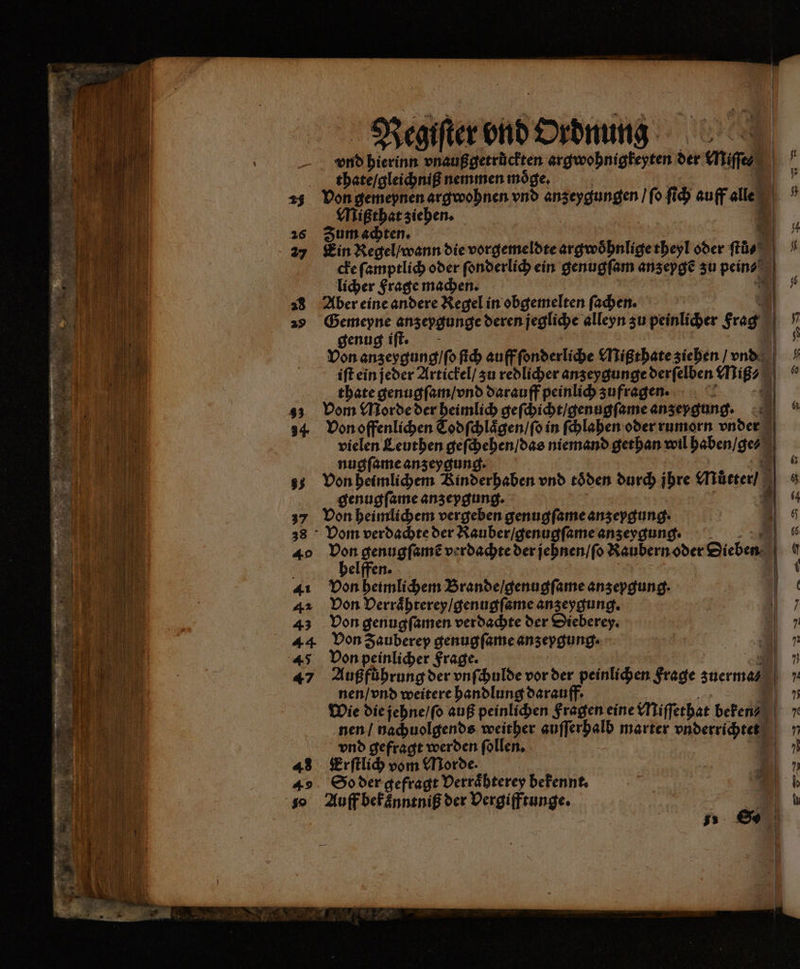 Regiſter vnd Ordnung
vnd hierinn vnaußgetrückten argwohnigkeyten der Miſſe⸗
thate/gleichniß nemmen möge.
25 Von gemeynen argwohnen vnd anzeygungen / ſo ſich auff alle
Mißthat ziehen.
26 Zum achten.
27 Ein Regel/wann die vorgemeldte argwöhnlige theyl oder ſtü⸗
cke ſamptlich oder ſonderlich ein genugſam anzeygē zu pein⸗
licher Frage machen.
28 Aber eine andere Regel in obgemelten ſachen.
29 Gemeyne anzeygunge deren jegliche alleyn zu peinlicher Frag
genug iſt.
Von anzeygung/ſo ſich auff ſonderliche Mißthate ziehen / vnd
iſt ein jeder Artickel/ zu redlicher anzeygunge derſelben Miß⸗
thate genugſam/vnd darauff peinlich zufragen.
33 Vom Morde der heimlich geſchicht/genugſame anzeygung.
34 Von offenlichen Todſchlägen/ſo in ſchlahen oder rumorn vnder
vielen Leuthen geſchehen/das niemand gethan wil haben/ge⸗
nugſame anzeygung.
35 Von heimlichem Kinderhaben vnd töden durch jhre Mütter/
genugſame anzeygung.
37 Von heimlichem vergeben genugſame anzeygung.
38 Vom verdachte der Rauber/genugſame anzeygung.
40 Von genugſamē verdachte der jehnen/ſo Raubern oder Dieben
helffen.
41 Von heimlichem Brande/genugſame anzeygung.
42 Von Verrähterey/genugſame anzeygung.
43 Von genugſamen verdachte der Dieberey.
44 Von Zauberey genugſame anzeygung.
45 Von peinlicher Frage.
47 Außführung der vnſchulde vor der peinlichen Frage zuerma⸗
nen/vnd weitere handlung darauff.
Wie die jehne/ſo auß peinlichen Fragen eine Miſſethat beken⸗
nen / nachuolgends weither auſſerhalb marter vnderrichtet
vnd gefragt werden ſollen.
48 Erſtlich vom Morde.
49 So der gefragt Verrähterey bekennt.
50 Auff bekänntniß der Vergifftunge.
51 So